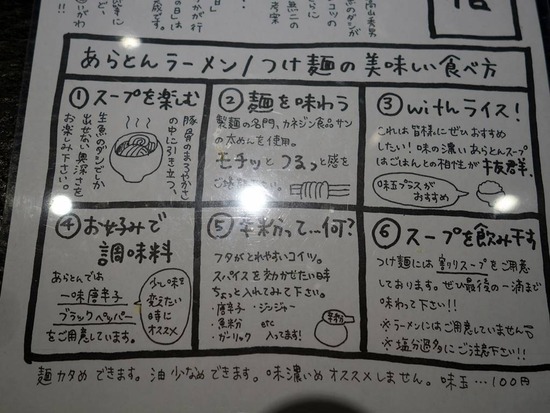 あらとんラーメン/つけ麺の美味しい食べ方
①スープを楽しむ
豚骨のまろやかさ
の中に引き立つ、
生魚のダシでしか
出せない奥深さを
お楽しみ下さい。
②麺を味わう
製麺の名門、カネジン食品サン
の太めんを使用。
モチッとつるっと感を
③withライス!
これは皆様にぜひおすすめ
したい!味の濃いあらとんスープ
はごはんとの相性が抜群。
味玉プラスが
おすすめ
④お好みで
調味料
あらとんでは
一味唐辛子
ブラックペッパー
をご用意しています。
少し味を
変えたい
時に
オススメ
⑤辛粉って…何?
フタがとれやすいコイツ。
スパイスを効かせたい時
ちょっと入れてみて下さい。
・唐辛子・ジンジャー
・魚粉 etc
・ガーリック 入ってます!
辛粉
⑥スープを飲み干す
つけ麺には割りスープをご用意
しております。ぜひ最後の一滴まで
味わって下さい!!
※ラーメンにはご用意していません
※塩分過多にご注意下さい!!
麺カタめできます。油少なめできます。味濃いめオススメしません。味玉…100円